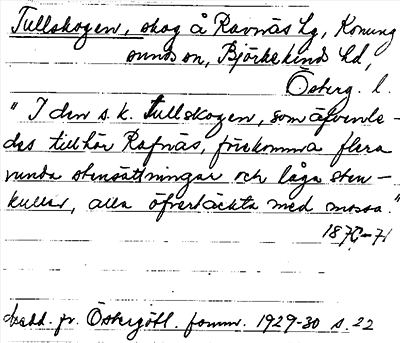 Tullskogen, skog å Ravnäs Lg, Konung
sunds sn, Björkekinds hd,
Österg. l.
"I den s.k. Tullskogen, som äfvenle-
des tillhör Rafnäs, förekomma flera
runda stensättningar och låga sten-
kullar, alla öfvertäckta med mossa."
1870-71
Medd. fr. Östergötl. fornm. 1929-30 s. 22